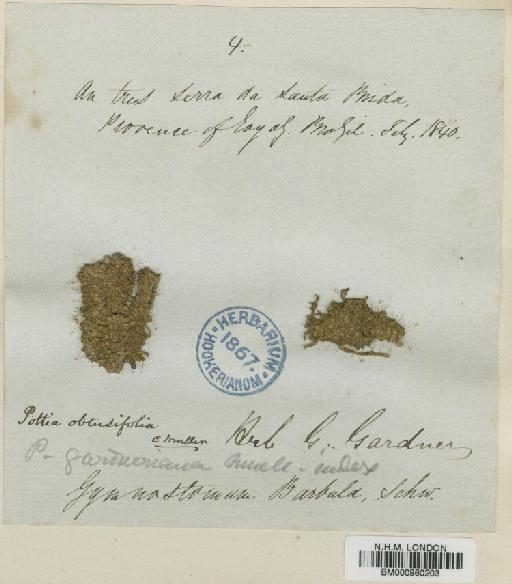 4.
On trees Serra da Santa Brida,
Province of Goyaz. Brazil. July. 1840.
HERBARIUM
HOOKERIANUM
1867.
Pottia obtusifolia
C Muller
Herb G. Gardner
P. gardneriana Muell - index
Gymnostomum Barbula, Schw.
N.H.M. LONDON
BM000960203